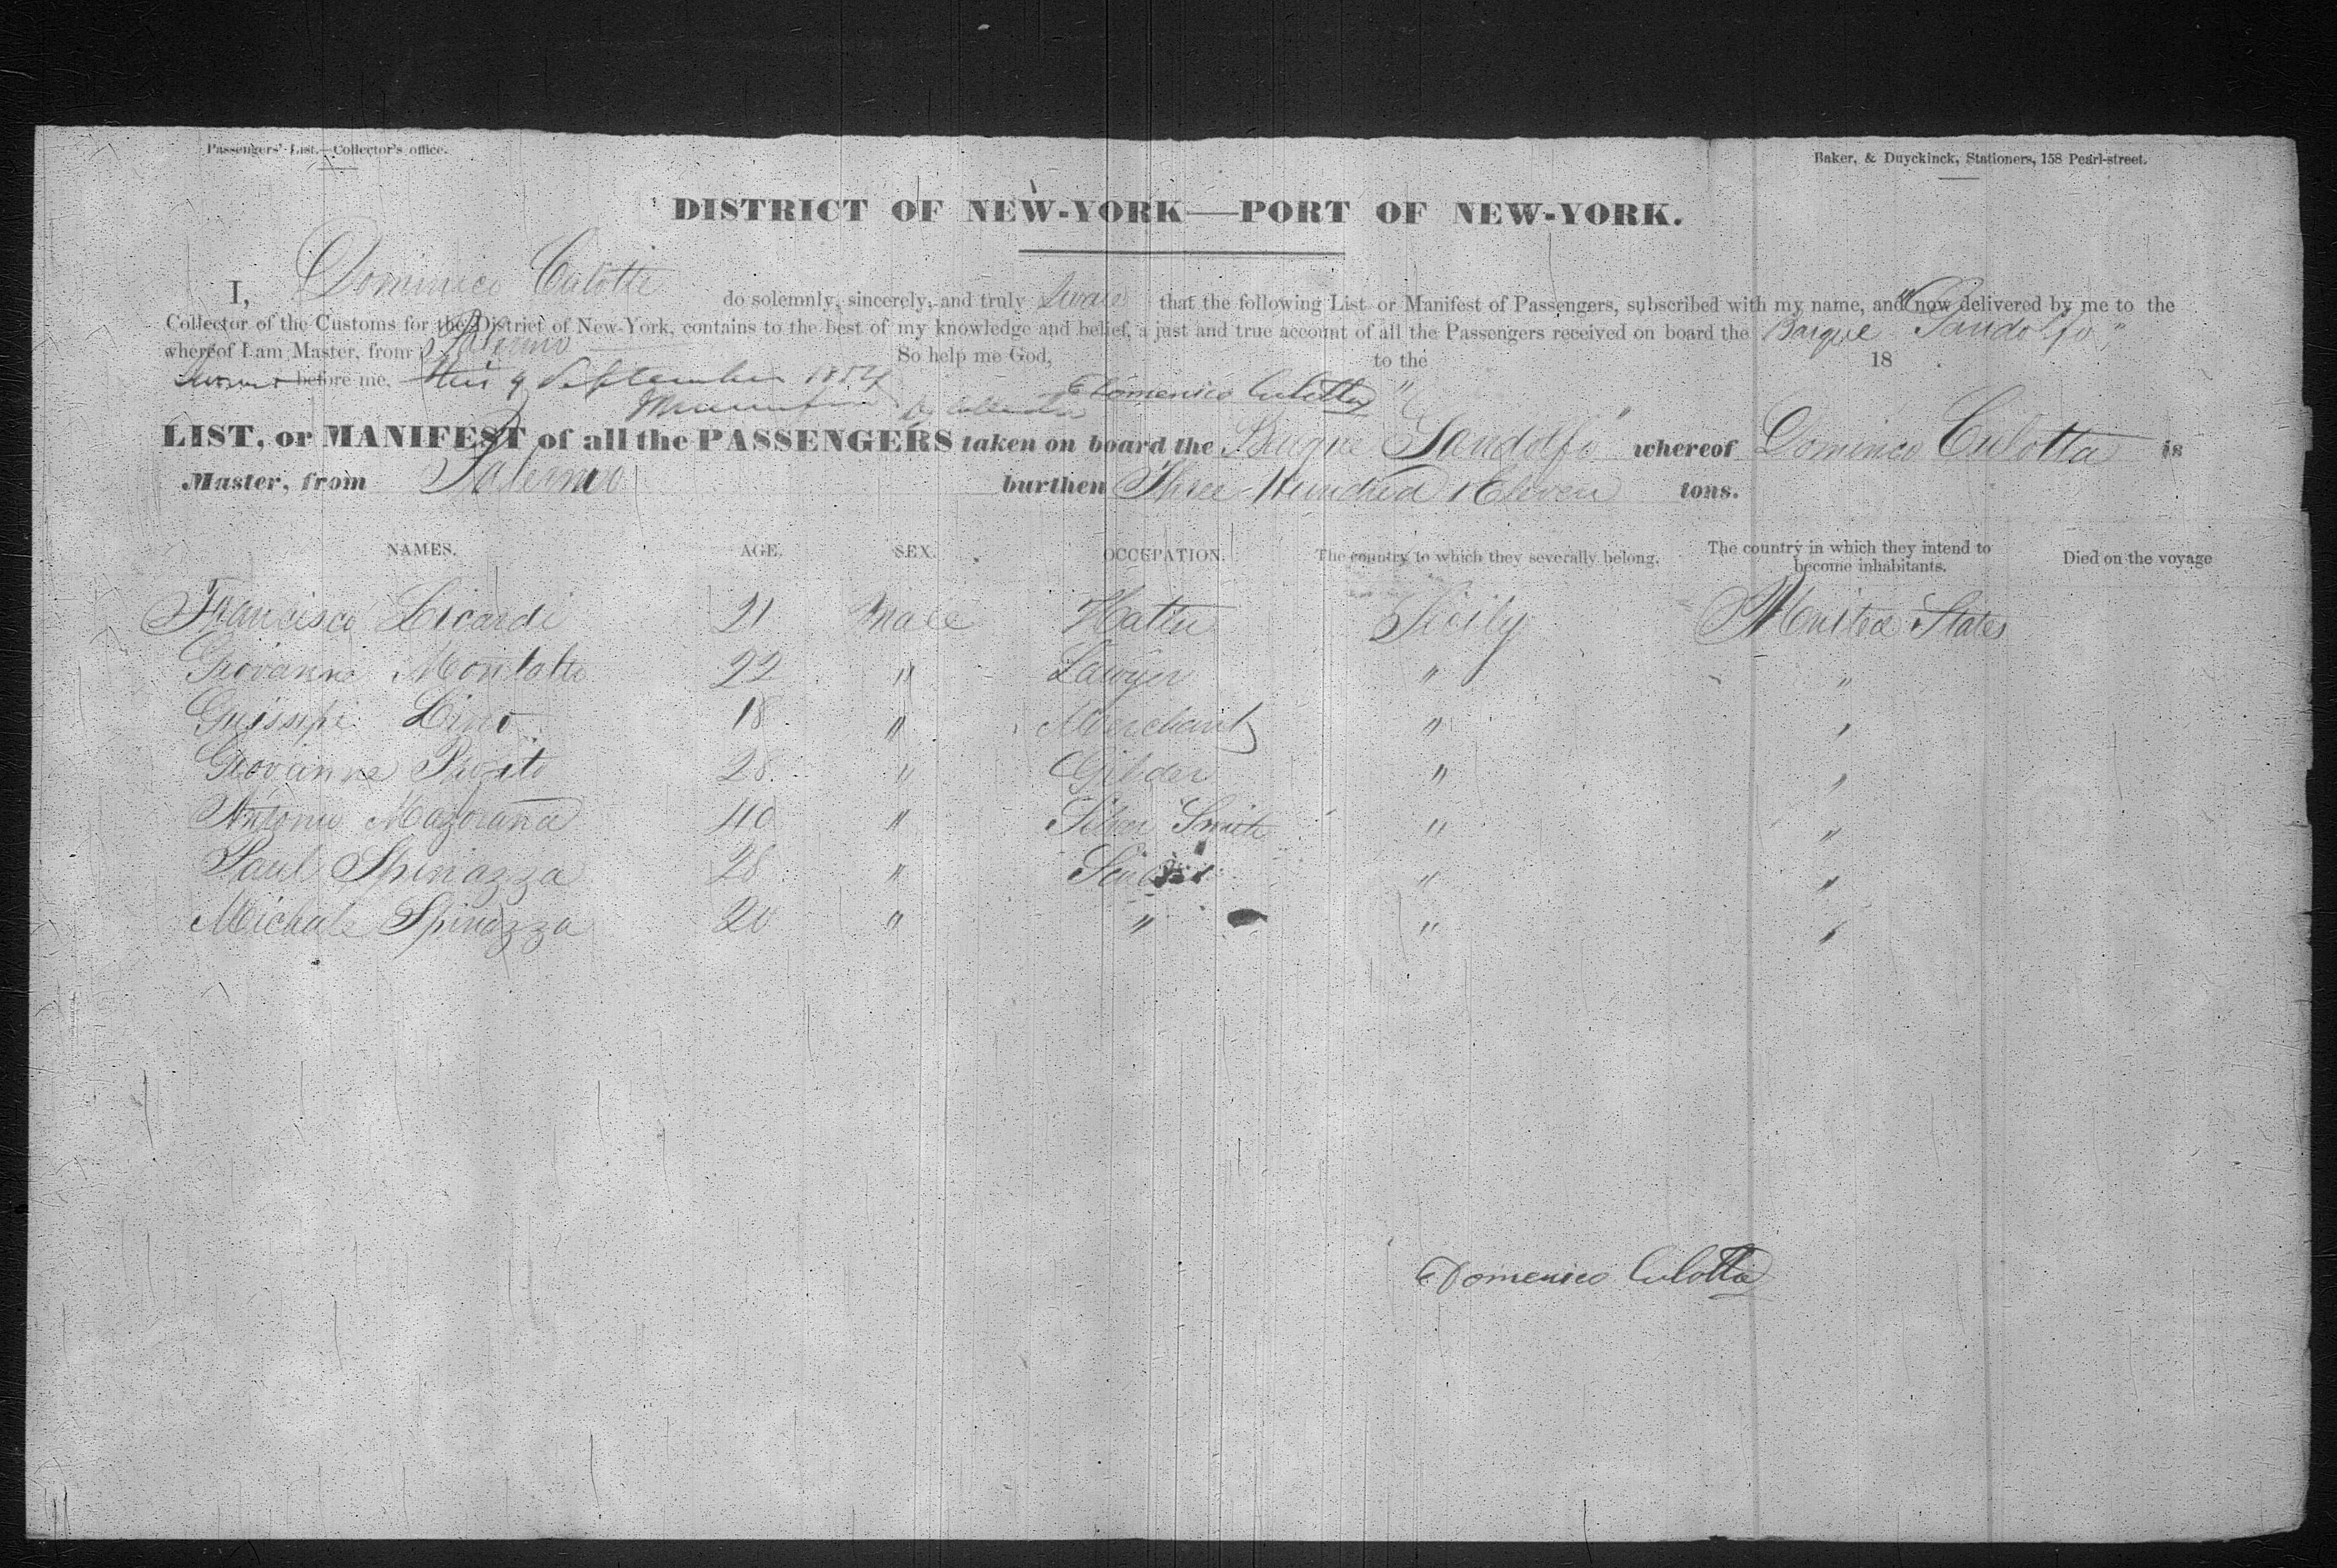 Passengers' List.—Collector's office.
Baker, & Duyckinck, Stationers, 158 Pearl-street.
DISTRICT OF NEW-YORK—PORT OF NEW-YORK.
I, Dominico Culotta do solemnly, sincerely, and truly Swear that the following List or Manifest of Passengers, subscribed with my name, and now delivered by me to the
Collector of the Customs for the District of New-York, contains to the best of my knowledge and belief, a just and true account of all the Passengers received on board the Barque "Pandolfo"
whereof I am Master, from Palermo So help me God, to the 18
Sworn before me, this 9 September 1854 Domenico Culotta
LIST, or MANIFEST of all the PASSENGERS taken on board the Barque Pandolfo whereof Dominco Culotta is
Master, from Palermo burthen Three Hundred & Eleven tons.
NAMES. AGE. SEX. OCCUPATION. The country to which they severally belong. The country in which they intend to become inhabitants. Died on the voyage
Francisco Licardi 21 Male Hatter Sicily United States
Giovanne Montalto 22 " Lawyer " "
Guissipi 18 " Merchant " "
Giovanne 28 " Gilder " "
Antonio Mazorana 40 " Silver Smith " "
Paul Spinazza 28 " " "
Michale Spinazza 20 " " " "
Domenico Culotta